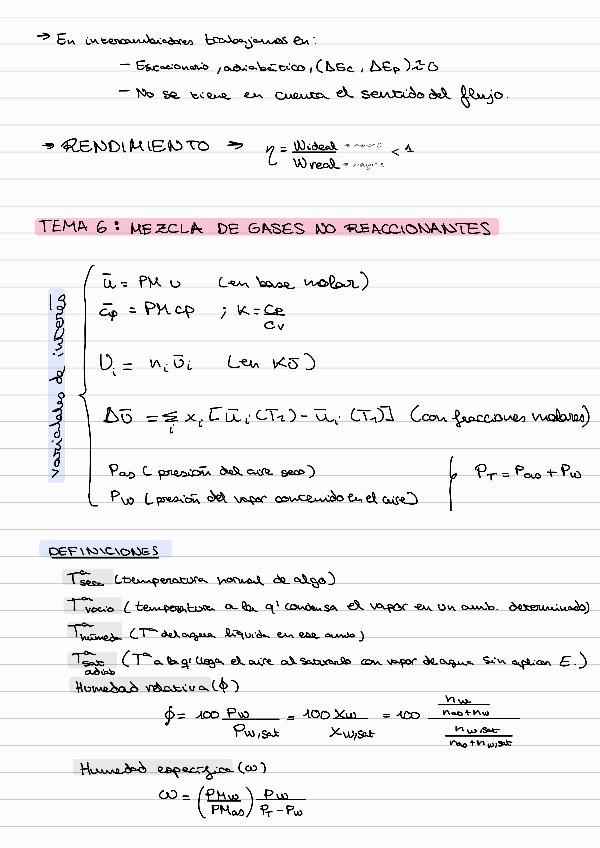 → En intercambiadores trabajamos en:
- Estacionario, adiabático, (ΔEc, ΔEp) ≈ 0
- No se tiene en cuenta el sentido del flujo.
→ RENDIMIENTO → η = Wideal / Wreal < 1
TEMA 6: MEZCLA DE GASES NO REACCIONANTES
variables de interés
ū = PM u (en base molar)
c̄p = PM cp ; K = cp / cv
Ui = ni ūi (en KJ)
Δū = Σi xi [ūi (T2) - ūi (T1)] (con fracciones molares)
Pas (presión del aire seco)
Pw (presión del vapor contenido en el aire)
PT = Pas + Pw
DEFINICIONES
Tª seca (temperatura normal de algo)
Tª rocío (temperatura a la q' condensa el vapor en un amb. determinado)
Tª húmeda (Tª del agua líquida en ese amb)
Tª sat adiab (Tª a la q' llega el aire al saturarlo con vapor de agua sin aplicar E.)
Humedad relativa (ϕ)
ϕ = 100 Pw / Pw,sat = 100 Xw / Xw,sat = 100 (nw / nas+nw) / (nw,sat / nas+nw,sat)
Humedad específica (ω)
ω = (PMw / PMas) Pw / PT - Pw